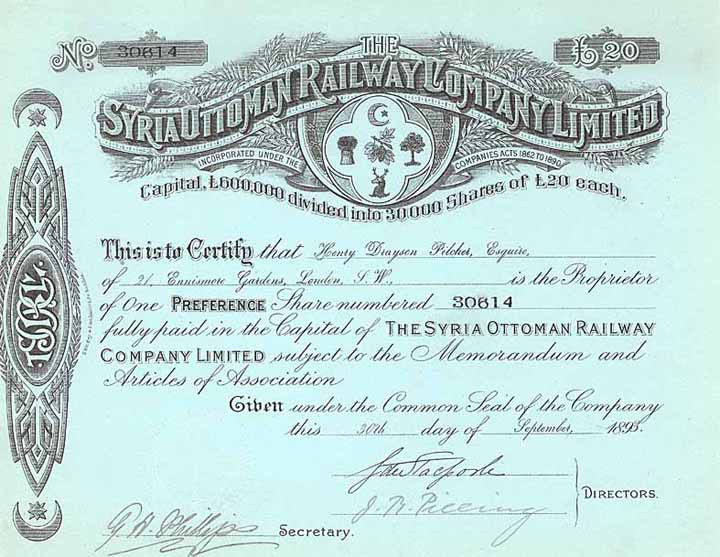 No. 30614
£20
THE
SYRIA OTTOMAN RAILWAY COMPANY LIMITED
INCORPORATED UNDER THE COMPANIES ACTS 1862 TO 1890
Capital, £600,000 divided into 30,000 Shares of £20 each.
This is to Certify that Henry Drayson Pilcher, Esquire,
of 21, Ennismore Gardens, London, S.W., is the Proprietor
of One PREFERENCE Share numbered 30614
fully paid in the Capital of THE SYRIA OTTOMAN RAILWAY
COMPANY LIMITED subject to the Memorandum and
Articles of Association
Given under the Common Seal of the Company
this 30th day of September, 1893.
J. R. Pilling
DIRECTORS.
G. H. Phillips Secretary.